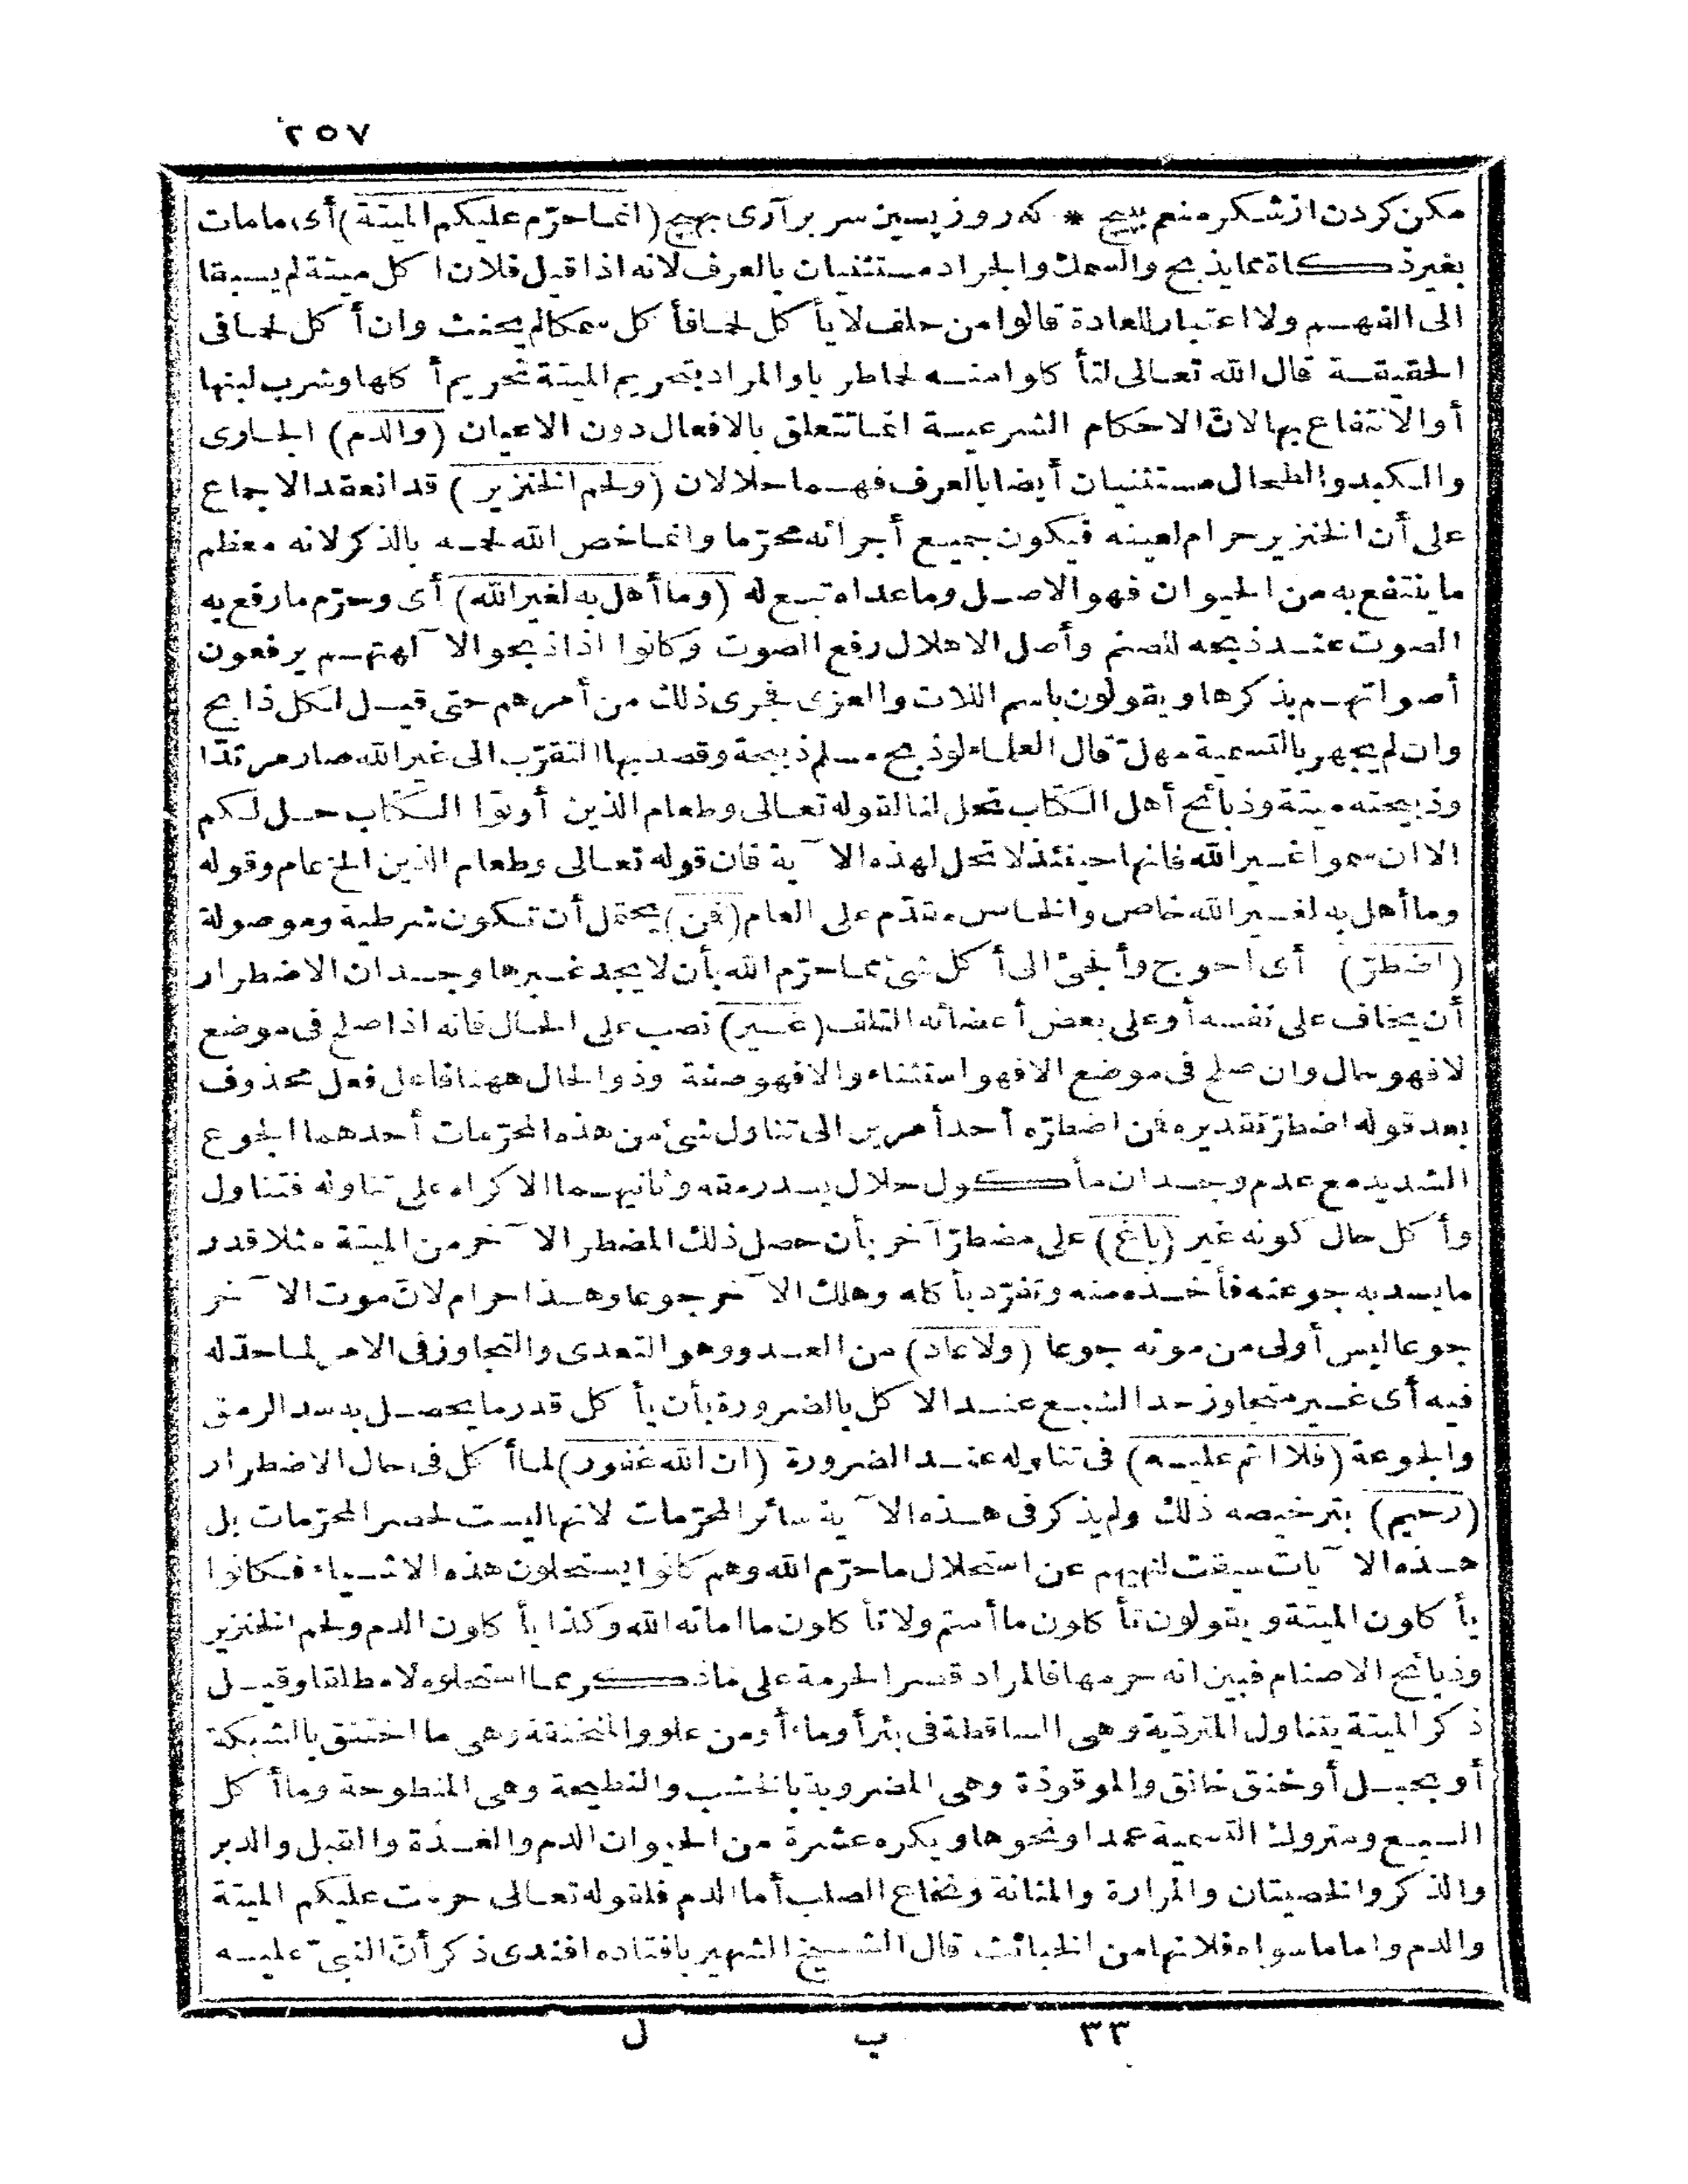 ٢٥٧
مكن كردن از شكر منعم مپيچ * كه روز پسين سر بر آرى بهيچ (انما حرّم عليكم الميتة) أى ما مات
بغير ذكاة مما يذبح والسمك والجراد مستثنيان بالعرف لانه اذا قيل فلان اكل ميتة لم يسبقا
الى الفهم ولا اعتبار للعادة قالوا من حلف لا يأكل لحما فأكل سمكا لم يحنث وان أكل لحما فى
الحقيقة قال الله تعالى لتأكلوا منه لحما طريا والمراد بتحريم الميتة تحريم أكلها وشرب لبنها
أو الانتفاع بها لانّ الاحكام الشرعية انما تتعلق بالافعال دون الاعيان (والدم) الجارى
والكبد والطحال مستثنيان أيضا بالعرف فهما حلالان (ولحم الخنزير) قد انعقد الاجماع
على أن الخنزير حرام لعينه فيكون جميع أجزائه محرّما وانما خص الله لحمه بالذكر لانه معظم
ما ينتفع به من الحيوان فهو الاصل وما عداه تبع له (وما أهل به لغير الله) أى وحرّم ما رفع به
الصوت عند ذبحه للصنم وأصل الاهلال رفع الصوت وكانوا اذا ذبحوا لآلهتهم يرفعون
أصواتهم بذكرها ويقولون باسم اللات والعزى فجرى ذلك من أمرهم حتى قيل لكل ذابح
وان لم يجهر بالتسمية مهلّ قال العلماء لو ذبح مسلم ذبيحة وقصد بها التقرّب الى غير الله صار مرتدّا
وذبيحته ميتة وذبائح أهل الكتاب تحل لنا لقوله تعالى وطعام الذين أوتوا الكتاب حل لكم
الا ان سموا غير الله فانها حينئذ لا تحل لهذه الآية فان قوله تعالى وطعام الذين الخ عام وقوله
وما أهل به لغير الله خاص والخاص مقدّم على العام (فمن) يحتمل أن تكون شرطية وموصولة
(اضطرّ) أى احوج وألجئ الى أكل شئ مما حرّم الله بأن لا يجد غيرها وجدان الاضطرار
أن يخاف على نفسه أو على بعض أعضائه التلف (غير) نصب على الحال فانه اذا صلح فى موضع
لا فهو حال وان صلح فى موضع الا فهو استثناء والا فهو صفة وذو الحال ههنا فاعل فعل محذوف
بعد قوله اضطرّ تقديره فمن اضطرّه أحد أمرين الى تناول شئ من هذه المحرّمات أحدهما الجوع
الشديد مع عدم وجدان مأكول حلال يسد رمقه وثانيهما الاكراه على تناوله فتناول
وأكل حال كونه غير (باغ) على مضطرّ آخر بأن حصل ذلك المضطر الآخر من الميتة مثلا قدر
ما يسد به جوعته فأخذه منه وتفرّد بأكله وهلك الآخر جوعا وهذا حرام لانّ موت الآخر
جوعا ليس أولى من موته جوعا (ولا عاد) من العدو وهو التعدى والتجاوز فى الامر لما حدّ له
فيه أى غير متجاوز حد الشبع عند الاكل بالضرورة بأن يأكل قدر ما يحصل به سد الرمق
والجوعة (فلا اثم عليه) فى تناوله عند الضرورة (ان الله غفور) لما أكل فى حال الاضطرار
(رحيم) بترخيصه ذلك ولم يذكر فى هذه الآية سائر المحرّمات لانها ليست لحصر المحرّمات بل
هذه الآيات سيقت لنهيهم عن استحلال ما حرّم الله وهم كانوا يستحلون هذه الاشياء فكانوا
يأكلون الميتة ويقولون تأكلون ما أمتم ولا تأكلون ما اماته الله وكذا يأكلون الدم ولحم الخنزير
وذبائح الاصنام فبين انه حرمها فالمراد قصر الحرمة على ما ذكر مما استحلوه لا مطلقا وقيل
ذكر الميتة يتناول المتردّية وهى الساقطة فى بئر أو ماء أو من علو والمنخنقة وهى ما اختنق بالشبكة
أو بحبل أو خنق خانق والموقوذة وهى المضروبة بالخشب والنطيحة وهى المنطوحة وما أكل
السبع ومتروك التسمية عمدا ونحوها ويكره عشرة من الحيوان الدم والغدّة والقبل والدبر
والذكر والخصيتان والمرارة والمثانة ونخاع الصلب أما الدم فلقوله تعالى حرمت عليكم الميتة
والدم واما ما سواه فلانها من الخبائث قال الشيخ الشهير بافتاده افندى ذكر أنّ النبىّ عليه
٣٣ ب ل